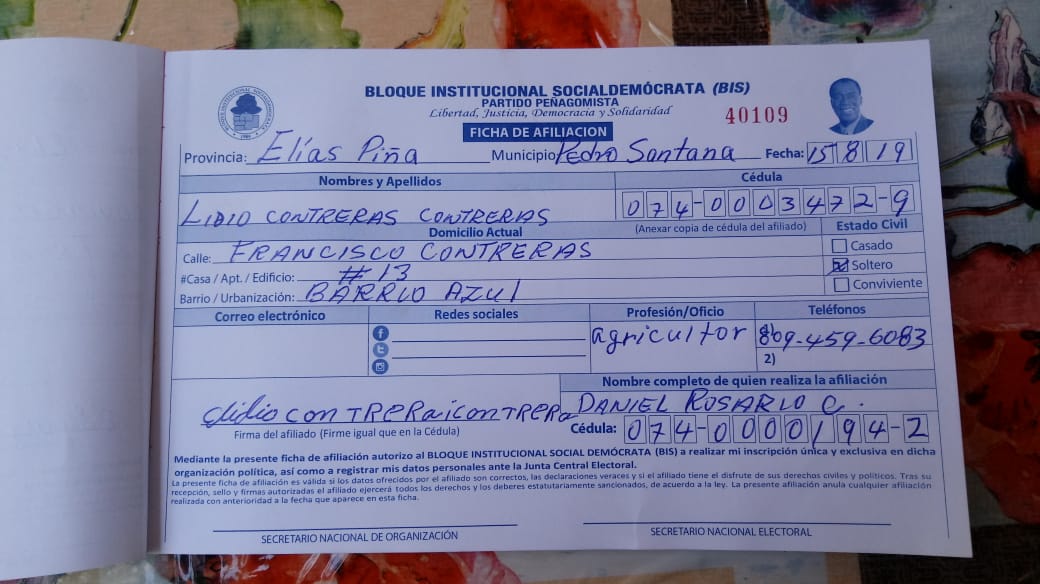 BLOQUE INSTITUCIONAL SOCIALDEMÓCRATA (BIS)
PARTIDO PEÑAGOMISTA
Libertad, Justicia, Democracia y Solidaridad
40109
FICHA DE AFILIACION
Provincia: Elías Piña Municipio Pedro Santana Fecha: 15 8 19
Nombres y Apellidos Cédula
LIDIO CONTRERAS CONTRERAS 074-0003472-9
Domicilio Actual (Anexar copia de cédula del afiliado) Estado Civil
Calle: FRANCISCO CONTRERAS Casado
#Casa / Apt. / Edificio: #13 Soltero
Barrio / Urbanización: BARRIO AZUL Conviviente
Correo electrónico Redes sociales Profesión/Oficio Teléfonos
agricultor 809-459-6083
2)
Nombre completo de quien realiza la afiliación
DANIEL ROSARIO C.
Firma del afiliado (Firme igual que en la Cédula) Cédula: 074-0000194-2
Mediante la presente ficha de afiliación autorizo al BLOQUE INSTITUCIONAL SOCIAL DEMÓCRATA (BIS) a realizar mi inscripción única y exclusiva en dicha
organización política, así como a registrar mis datos personales ante la Junta Central Electoral.
La presente ficha de afiliación es válida si los datos ofrecidos por el afiliado son correctos, las declaraciones veraces y si el afiliado tiene el disfrute de sus derechos civiles y políticos. Tras su
recepción, sello y firmas autorizadas el afiliado ejercerá todos los derechos y los deberes estatutariamente sancionados, de acuerdo a la ley. La presente afiliación anula cualquier afiliación
realizada con anterioridad a la fecha que aparece en esta ficha.
SECRETARIO NACIONAL DE ORGANIZACIÓN SECRETARIO NACIONAL ELECTORAL